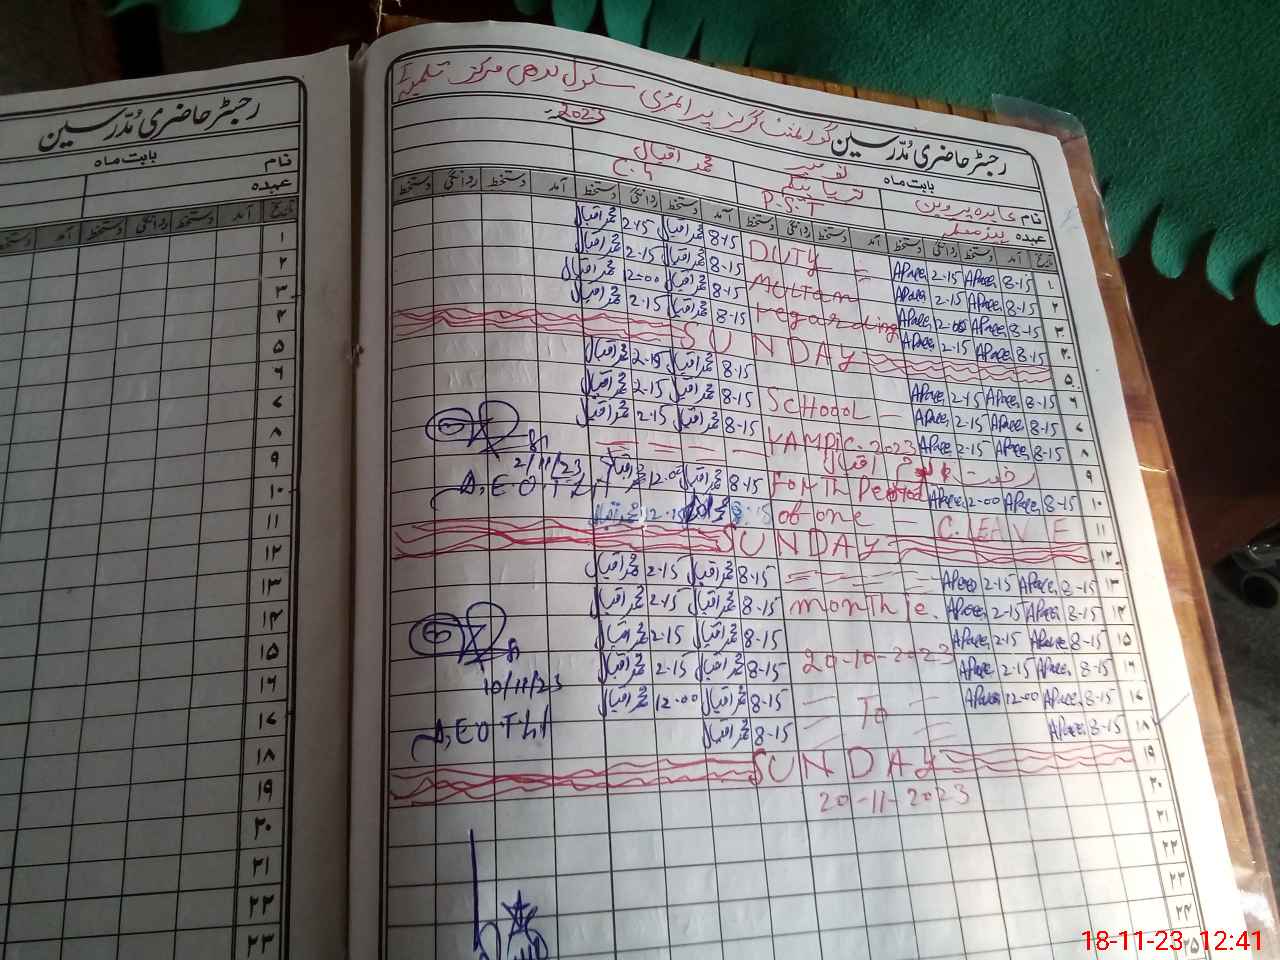 رجسٹر حاضری مدرسین
بابت ماہ
نام
عہدہ
تاریخ آمد دستخط روانگی دستخط آمد
۱
۲
۳
۴
۵
۶
۷
۸
۹
۱۰
۱۱
۱۲
۱۳
۱۴
۱۵
۱۶
۱۷
۱۸
۱۹
۲۰
۲۱
۲۲
۲۳
رجسٹر حاضری مدرسین گورنمنٹ گرلز پرائمری سکول
بابت ماہ نومبر 2023
نام عابدہ پروین ثریا بیگم محمد اقبال
عہدہ P.S.T
تاریخ آمد دستخط روانگی دستخط آمد دستخط روانگی دستخط آمد دستخط روانگی دستخط آمد دستخط روانگی دستخط
۱ 8-15 2-15 DUTY 8-15 محمد اقبال 2-15 محمد اقبال
۲ 8-15 2-15 MULTAN 8-15 محمد اقبال 2-15 محمد اقبال
۳ 8-15 12-00 regarding 8-15 محمد اقبال 12-00 محمد اقبال
۴ 8-15 2-15 8-15 محمد اقبال 2-15 محمد اقبال
۵ SUNDAY
۶ 8-15 2-15 8-15 محمد اقبال 2-15 محمد اقبال
۷ 8-15 2-15 SCHOOOL 8-15 محمد اقبال 2-15 محمد اقبال
۸ 8-15 2-15 2023 8-15 محمد اقبال 2-15 محمد اقبال
۹ اقبال
2/11/23
۱۰ 8-15 12-00 For th Period 8-15 محمد اقبال 12-00 محمد اقبال
۱۱ C.LEAVE of one 8-15 12-15
۱۲ SUNDAY
۱۳ 8-15 2-15 8-15 محمد اقبال 2-15 محمد اقبال
۱۴ 8-15 2-15 month ie. 8-15 محمد اقبال 2-15 محمد اقبال
۱۵ 8-15 2-15 8-15 محمد اقبال 2-15 محمد اقبال
۱۶ 8-15 2-15 20-10-2023 8-15 محمد اقبال 2-15 محمد اقبال
10/11/23
۱۷ 8-15 12-00 8-15 محمد اقبال 12-00 محمد اقبال
۱۸ 8-15 To 8-15 محمد اقبال
۱۹ SUNDAY
۲۰ 20-11-2023
۲۱
۲۲
۲۳
۲۴
۲۵
18-11-23 12:41